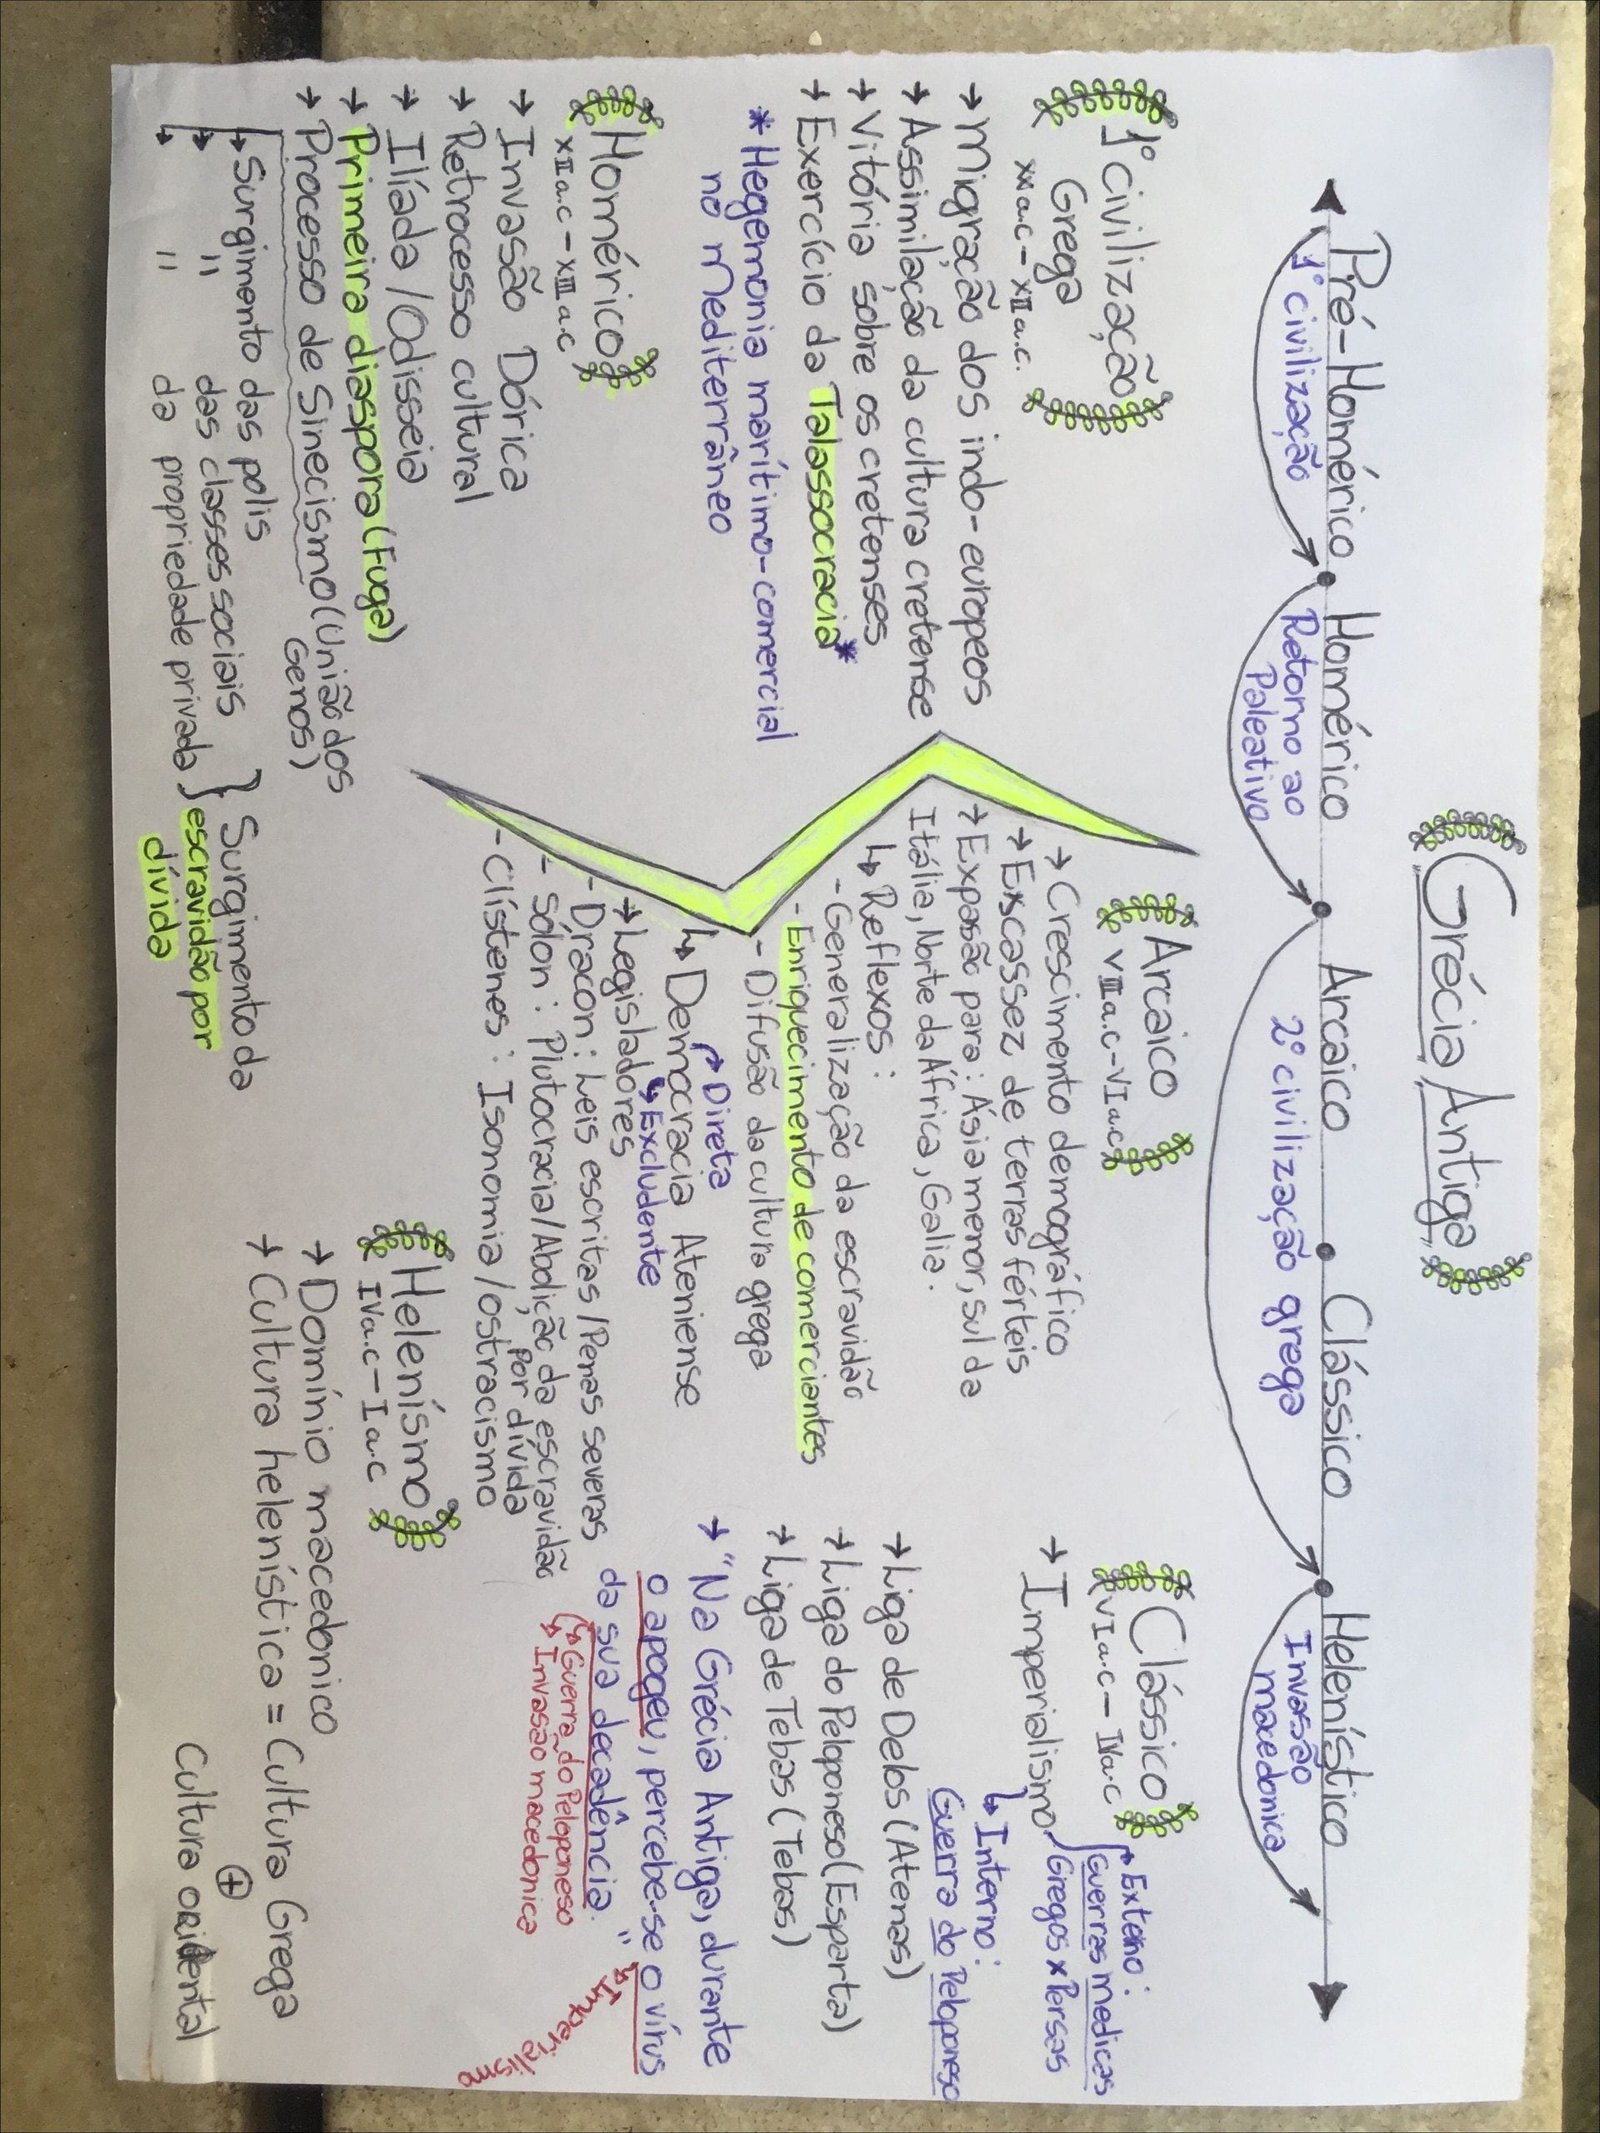 Grécia Antiga
Pré-Homérico
Homérico
Arcaico
Clássico
Helenístico
1º civilização
Retorno ao
Paleativo
2º civilização grega
Invasão
macedonica
1º civilização
Grega
XX a.c - XII a.c.
→ Migração dos indo-europeos
→ Assimilação da cultura cretense
→ Vitória sobre os cretenses
→ Exercício da Talassocracia*
* Hegemonia marítimo-comercial
no Mediterrâneo
Homérico
XII a.c - XIII a.c
→ Invasão Dórica
→ Retrocesso cultural
→ Ilíada / Odisseia
→ Primeira diaspora (Fuga)
→ Processo de Sinecismo (União dos
Genos)
↳ Surgimento das polis
→ " das classes sociais
→ " da propriedade privada
} Surgimento da
} escravidão por
dívida
Arcaico
VIII a.c - VI a.c
→ Crescimento demográfico
→ Escassez de terras férteis
→ Expansão para: Ásia menor, Sul da
Itália, Norte da África, Galia.
↳ Reflexos:
- Generalização da escravidão
- Enriquecimento de comerciantes
- Difusão da cultura grega
↱ Direta
↳ Democracia Ateniense
↳ Excludente
→ Legisladores
- Dracon: Leis escritas / Penas severas
- Sólon: Plutocracia / Abolição da escravidão
Por dívida
- Clístenes: Isonomia / ostracismo
Clássico
VI a.c - IV a.c
↱ Externo:
Guerras medicas
Gregos x Persas
→ Imperialismo
↳ Interno:
Guerra do Peloponeso
→ Liga de Delos (Atenas)
→ Liga do Peloponeso (Esparta)
→ Liga de Tebas (Tebas)
→ "Na Grécia Antiga, durante
o apogeu, percebe-se o vírus
da sua decadência."
↳ Imperialismo
↳ Guerra do Peloponeso
↳ Invasão macedonica
Helenísmo
IV a.c - I a.c
→ Domínio macedonico
→ Cultura helenística = Cultura Grega
+
Cultura oriental